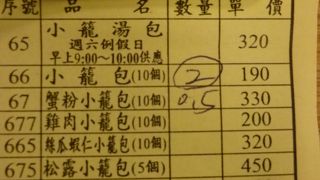 序號 品 名 數量 單價
65 小籠湯包 320
週六例假日
早上9:00~10:00供應
66 小 籠 包(10個) 2 190
67 蟹粉小籠包(10個) 0.5 330
677 雞肉小籠包(10個) 200
665 絲瓜蝦仁小籠包(10個) 320
675 松露小籠包(5個) 450